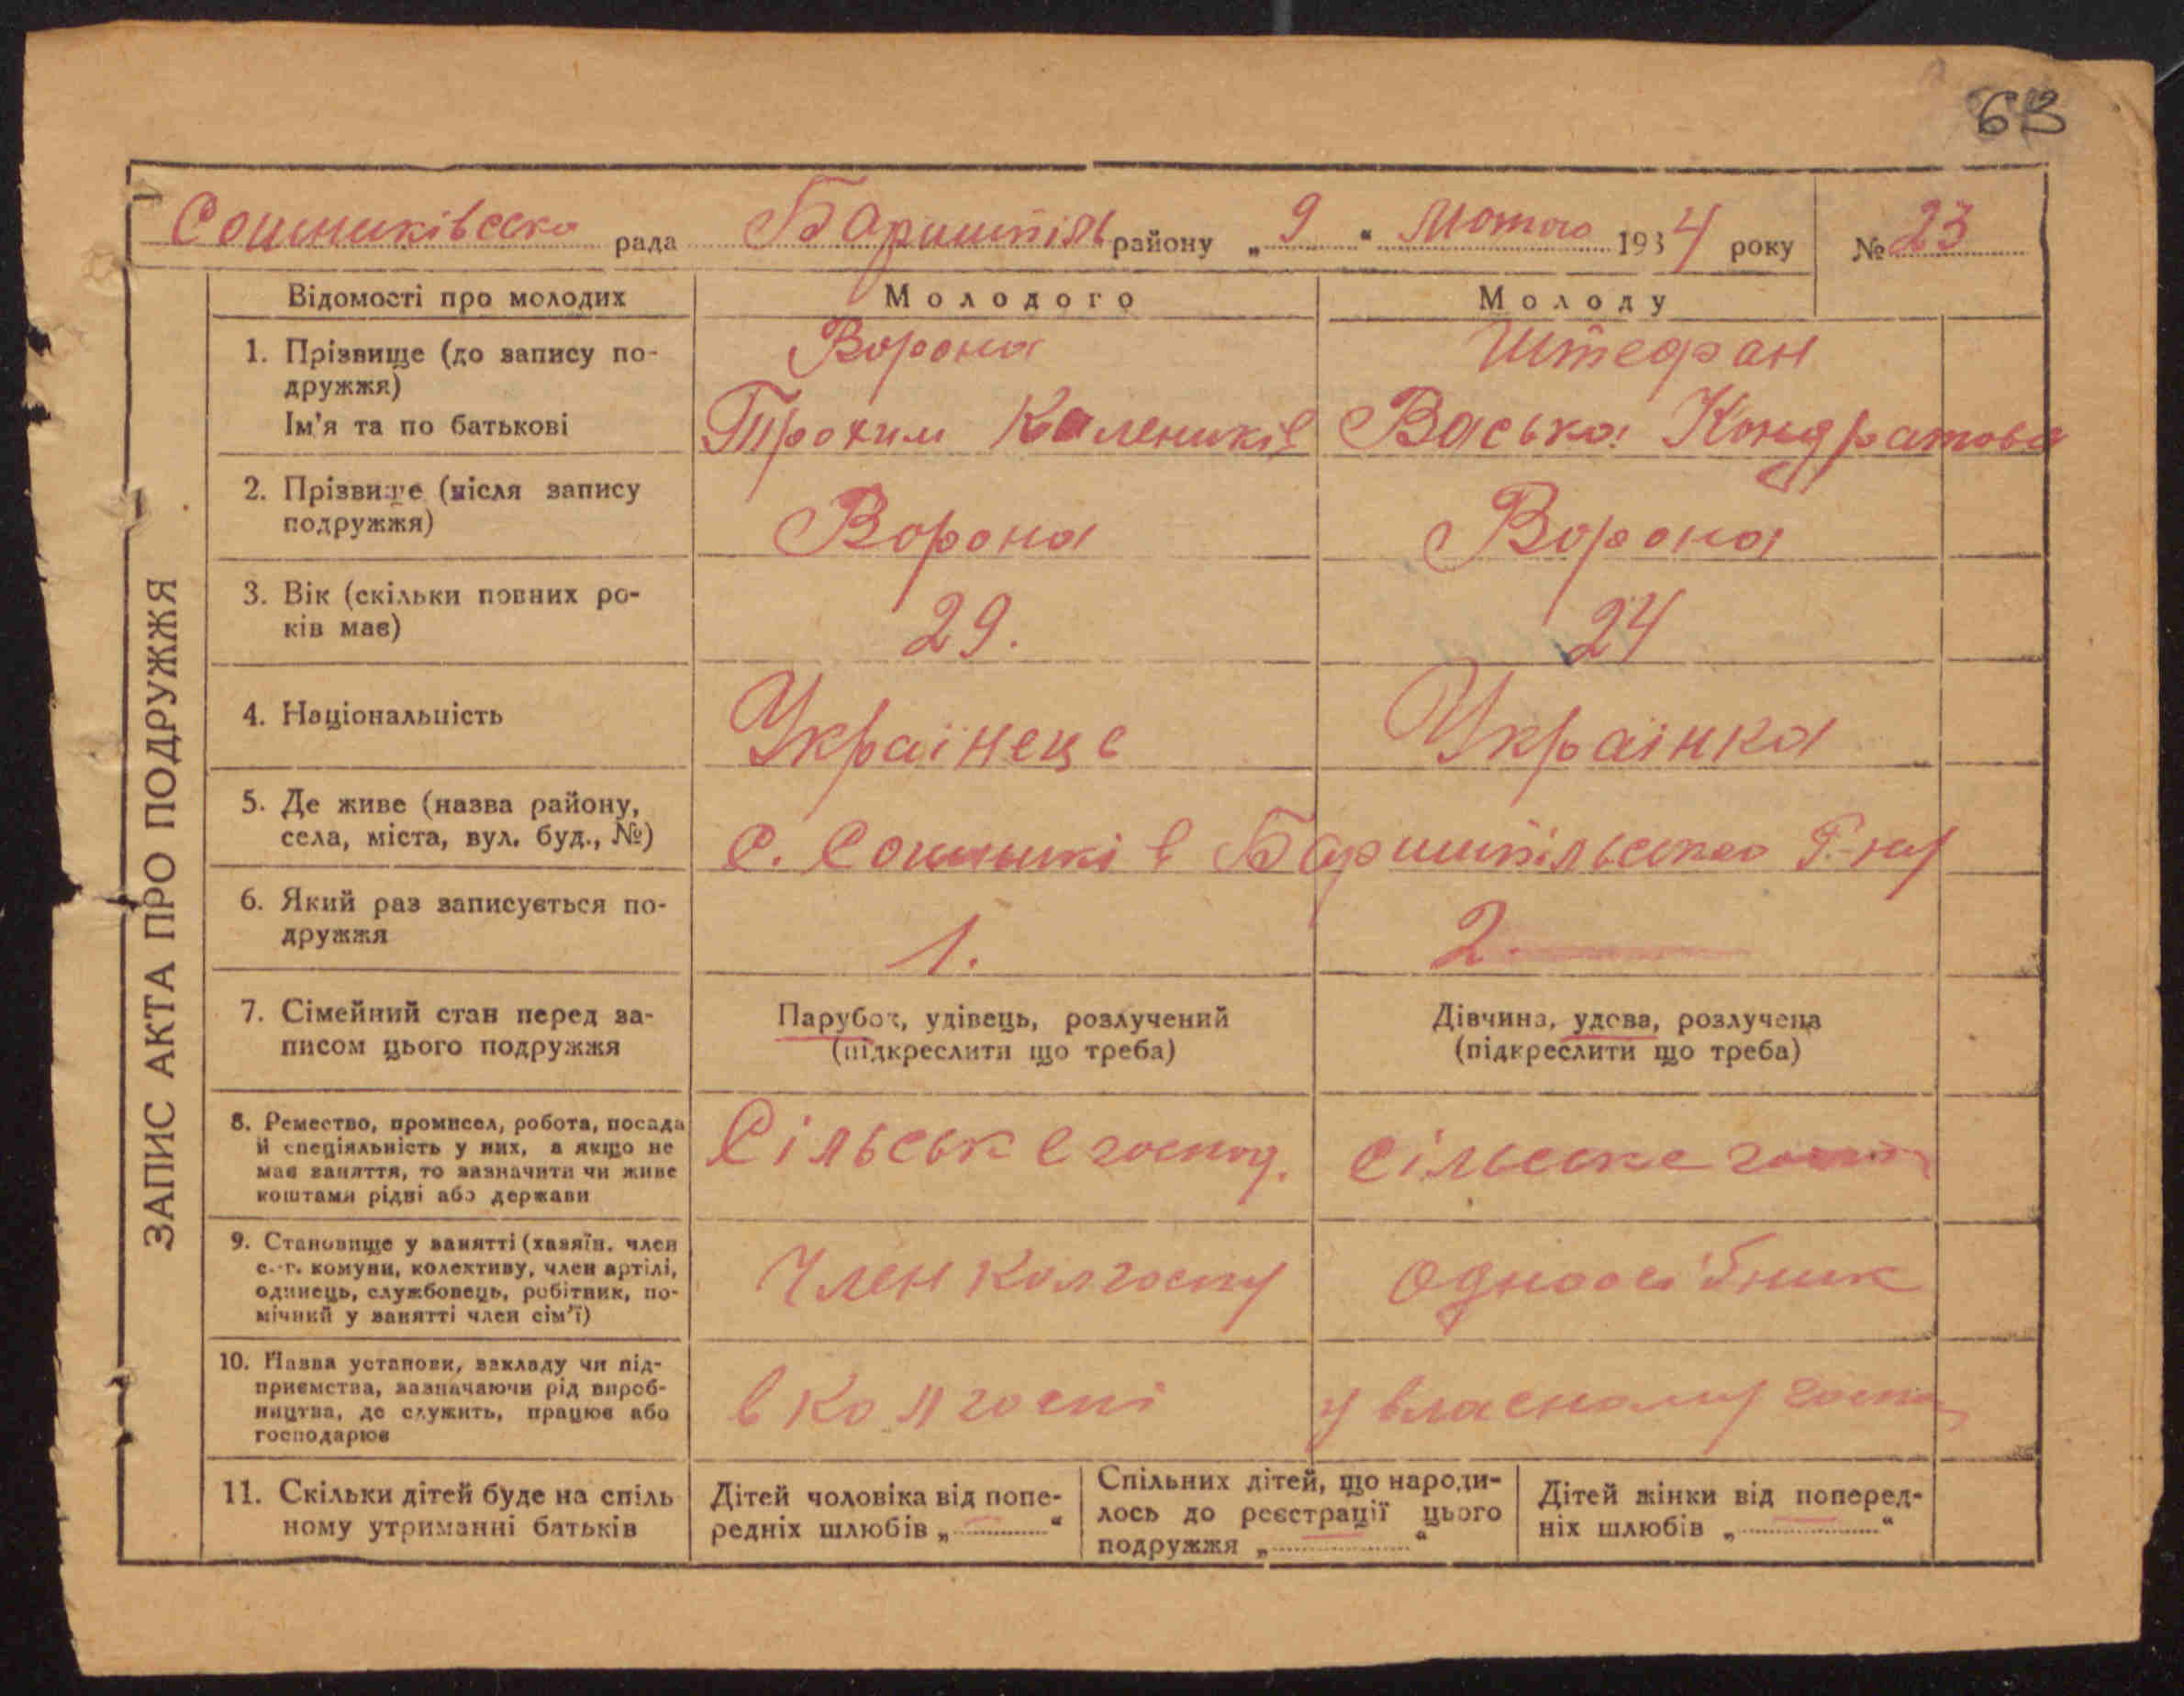 63
Сошниківсска рада Баришпіль району „ 9 “ Лютого 1934 року № 23
Відомості про молодих
Молодого
Молоду
1. Прізвище (до запису по-
дружжя)
Ім'я та по батькові
Ворона
Трохим Калеників
Штефан
Васька Кондратова
2. Прізвище (після запису
подружжя)
Ворона
Ворона
3. Вік (скільки повних ро-
ків має)
29.
24
4. Національність
Українець
Українка
5. Де живе (назва району,
села, міста, вул. буд., №)
С. Сошникі в Баришпільського Р-ну
6. Який раз записується по-
дружжя
1.
2.
7. Сімейний стан перед за-
писом цього подружжя
Парубок, удівець, розлучений
(підкреслити що треба)
Дівчина, удова, розлучена
(підкреслити що треба)
8. Ремество, промисел, робота, посада
й спеціяльність у них, а якщо не
має заняття, то зазначити чи живе
коштами рідні або держави
Сільське господ.
Сільське госп
9. Становище у занятті (хазяїн, член
с.-г. комуни, колективу, член артілі,
одинець, службовець, робітник, по-
мічний у занятті член сім'ї)
Член Колгоспу
Одноосібник
10. Назва установи, закладу чи під-
приємства, зазначаючи рід вироб-
ництва, де служить, працює або
господарює
в Колгоспі
у власному госпо
11. Скільки дітей буде на спіль
ному утриманні батьків
Дітей чоловіка від попе-
редніх шлюбів „ “
Спільних дітей, що народи-
лось до реєстрації цього
подружжя „ “
Дітей жінки від поперед-
ніх шлюбів „ “
ЗАПИС АКТА ПРО ПОДРУЖЖЯ